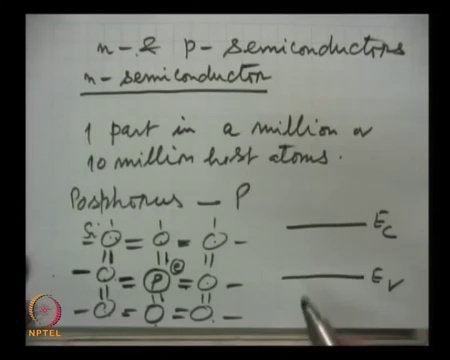 n- & p- semiconductors
n-semiconductor
1 part in a million or
10 million host atoms.
Posphorus — P
Si
e
P
Ec
Ev
NPTEL